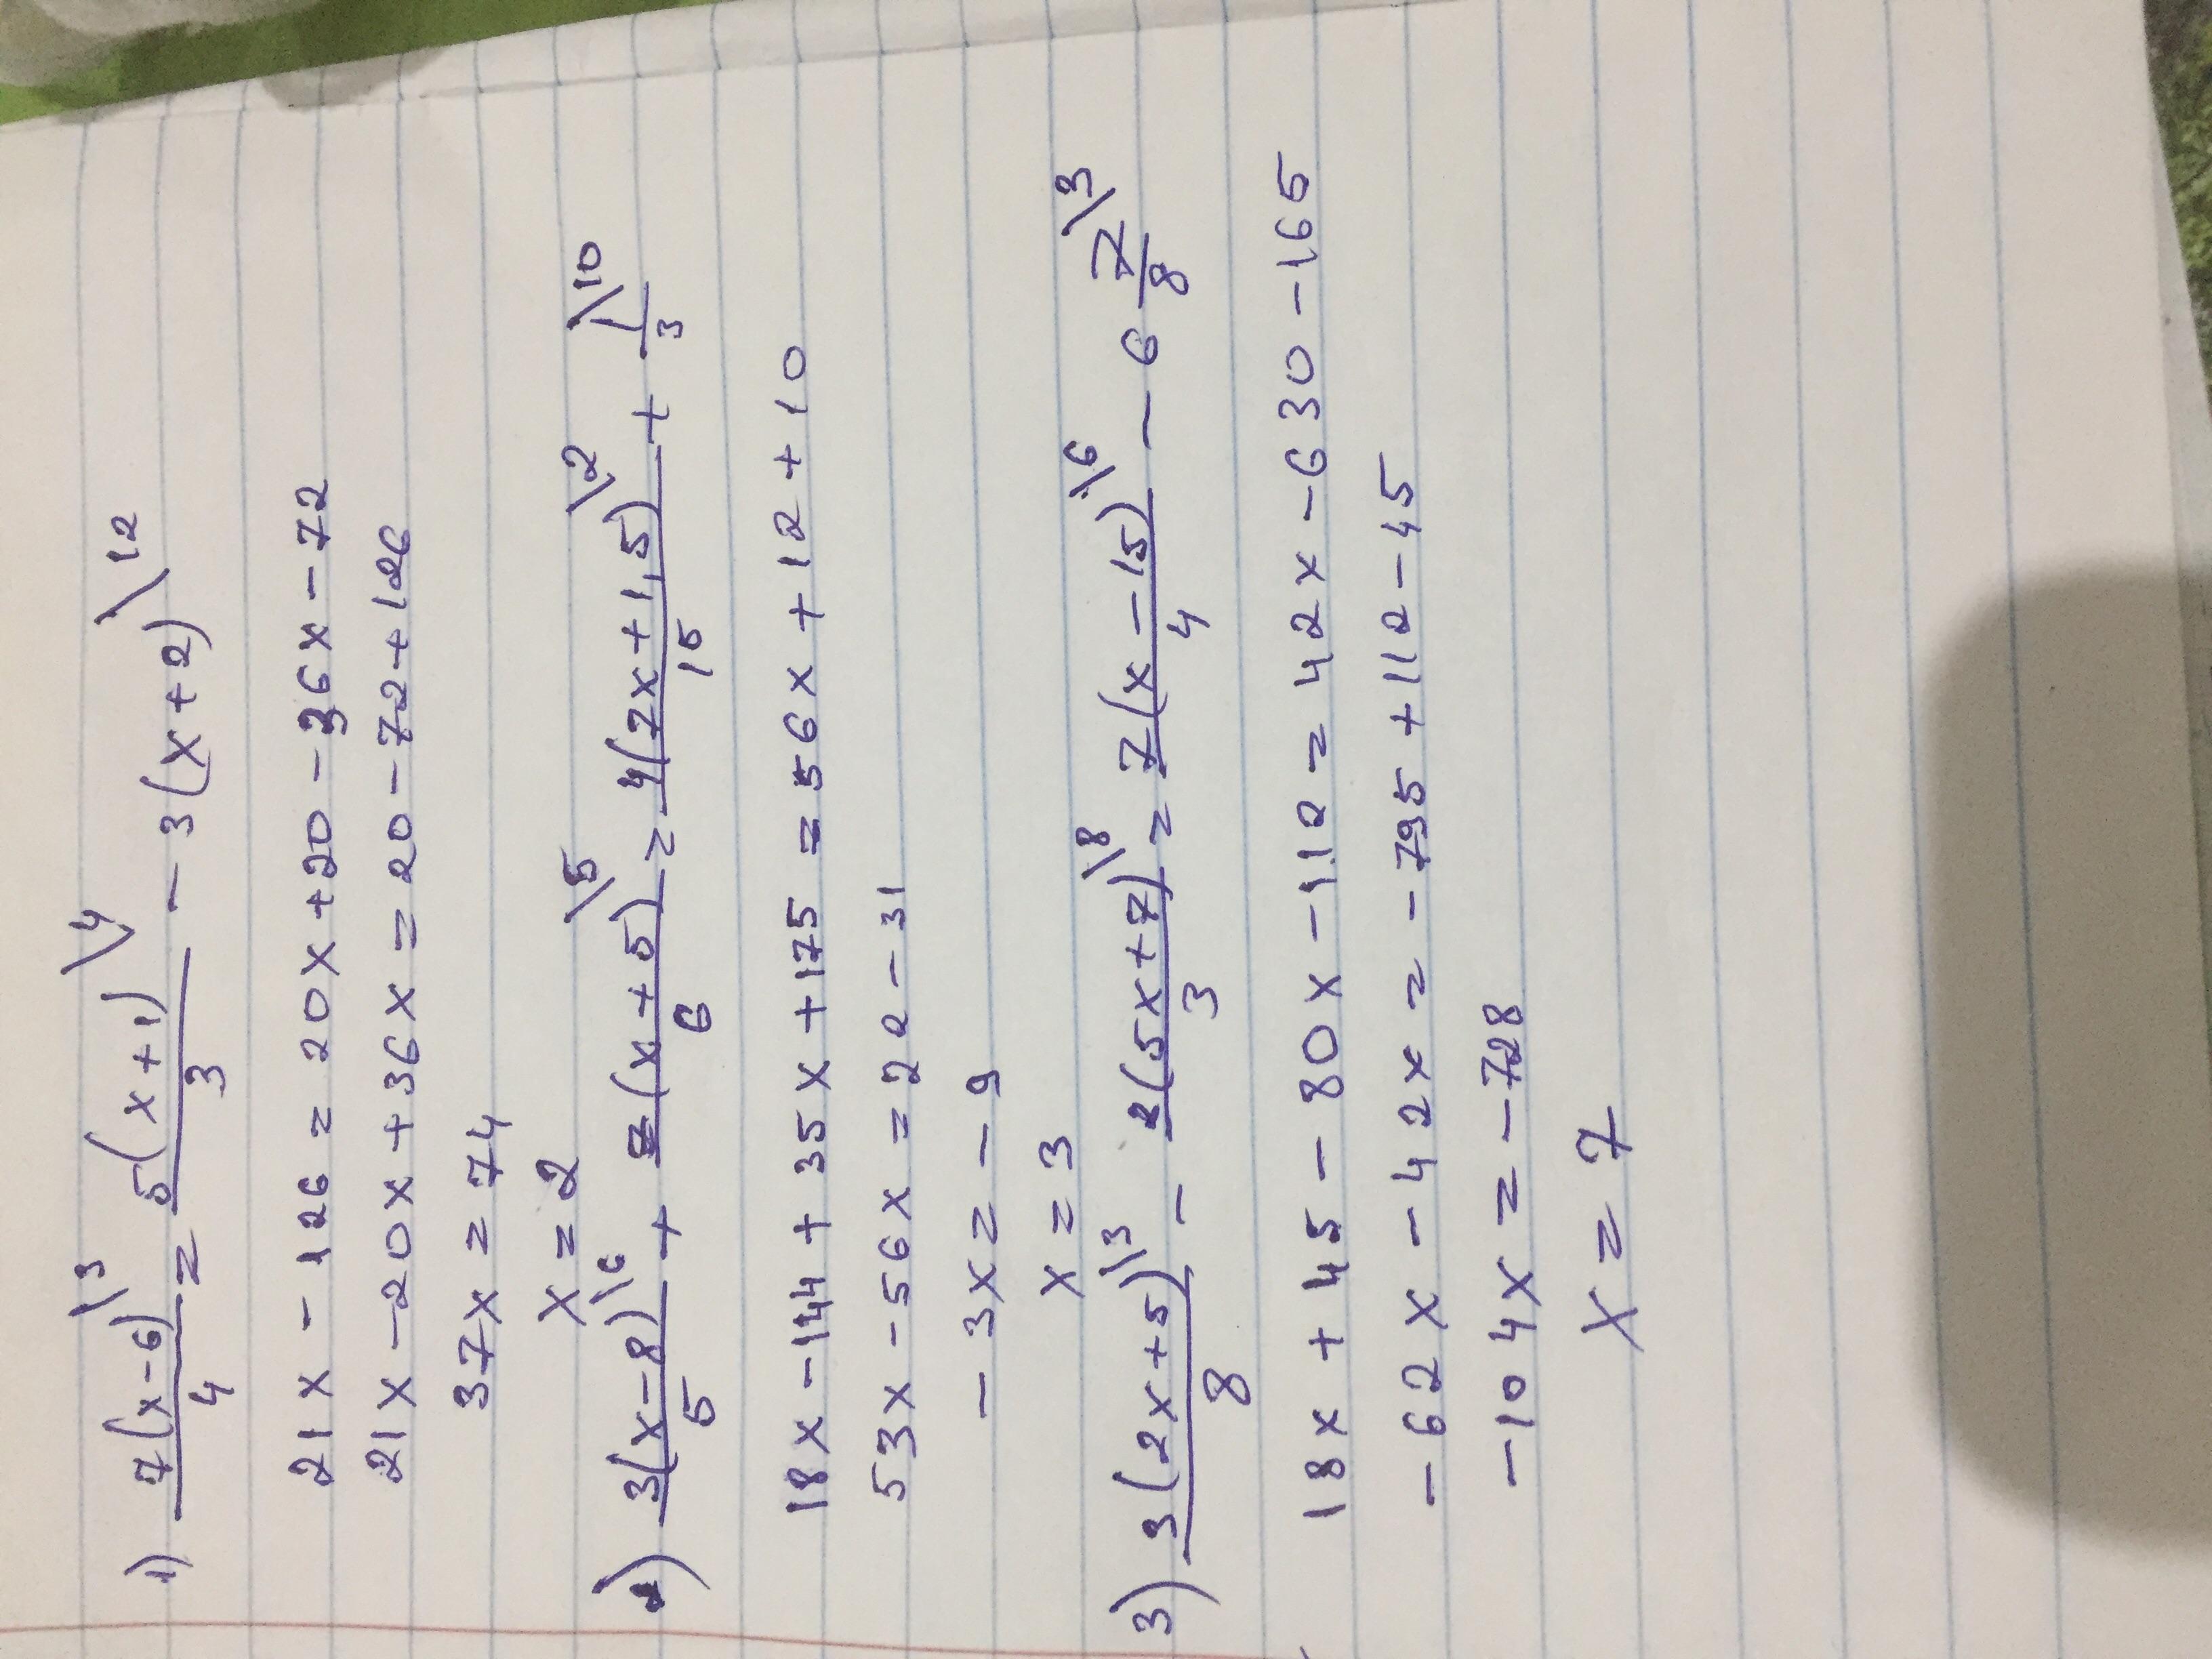 1) 7(x-6)/4 \3 = 5(x+1)/3 \4 - 3(x+2) \12
21x - 126 = 20x + 20 - 36x - 72
21x - 20x + 36x = 20 - 72 + 126
37x = 74
x = 2
2) 3(x-8)/5 \6 + 7(x+5)/6 \5 = 4(7x+1,5)/15 \2 + 1/3 \10
18x - 144 + 35x + 175 = 56x + 12 + 10
53x - 56x = 22 - 31
- 3x = - 9
x = 3
3) 3(2x+5)/8 \3 - 2(5x+7)/3 \8 = 7(x-15)/4 \6 - 6 7/8 \3
18x + 45 - 80x - 112 = 42x - 630 - 165
- 62x - 42x = - 795 + 112 - 45
- 104x = - 728
x = 7